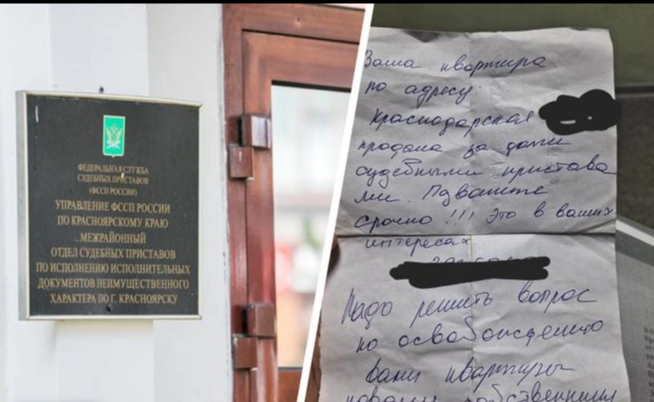 ФЕДЕРАЛЬНАЯ СЛУЖБА
СУДЕБНЫХ ПРИСТАВОВ
(ФССП РОССИИ)
УПРАВЛЕНИЕ ФССП РОССИИ
ПО КРАСНОЯРСКОМУ КРАЮ
МЕЖРАЙОННЫЙ
ОТДЕЛ СУДЕБНЫХ ПРИСТАВОВ
ПО ИСПОЛНЕНИЮ ИСПОЛНИТЕЛЬНЫХ
ДОКУМЕНТОВ НЕИМУЩЕСТВЕННОГО
ХАРАКТЕРА ПО Г. КРАСНОЯРСКУ
Ваша квартира
по адресу:
Краснодарская
продана за долги
судебными пристава
ми. Позвоните
срочно!!! Это в ваших
интересах
Надо решить вопрос
по освобождению
вами квартиры
новыми собственники